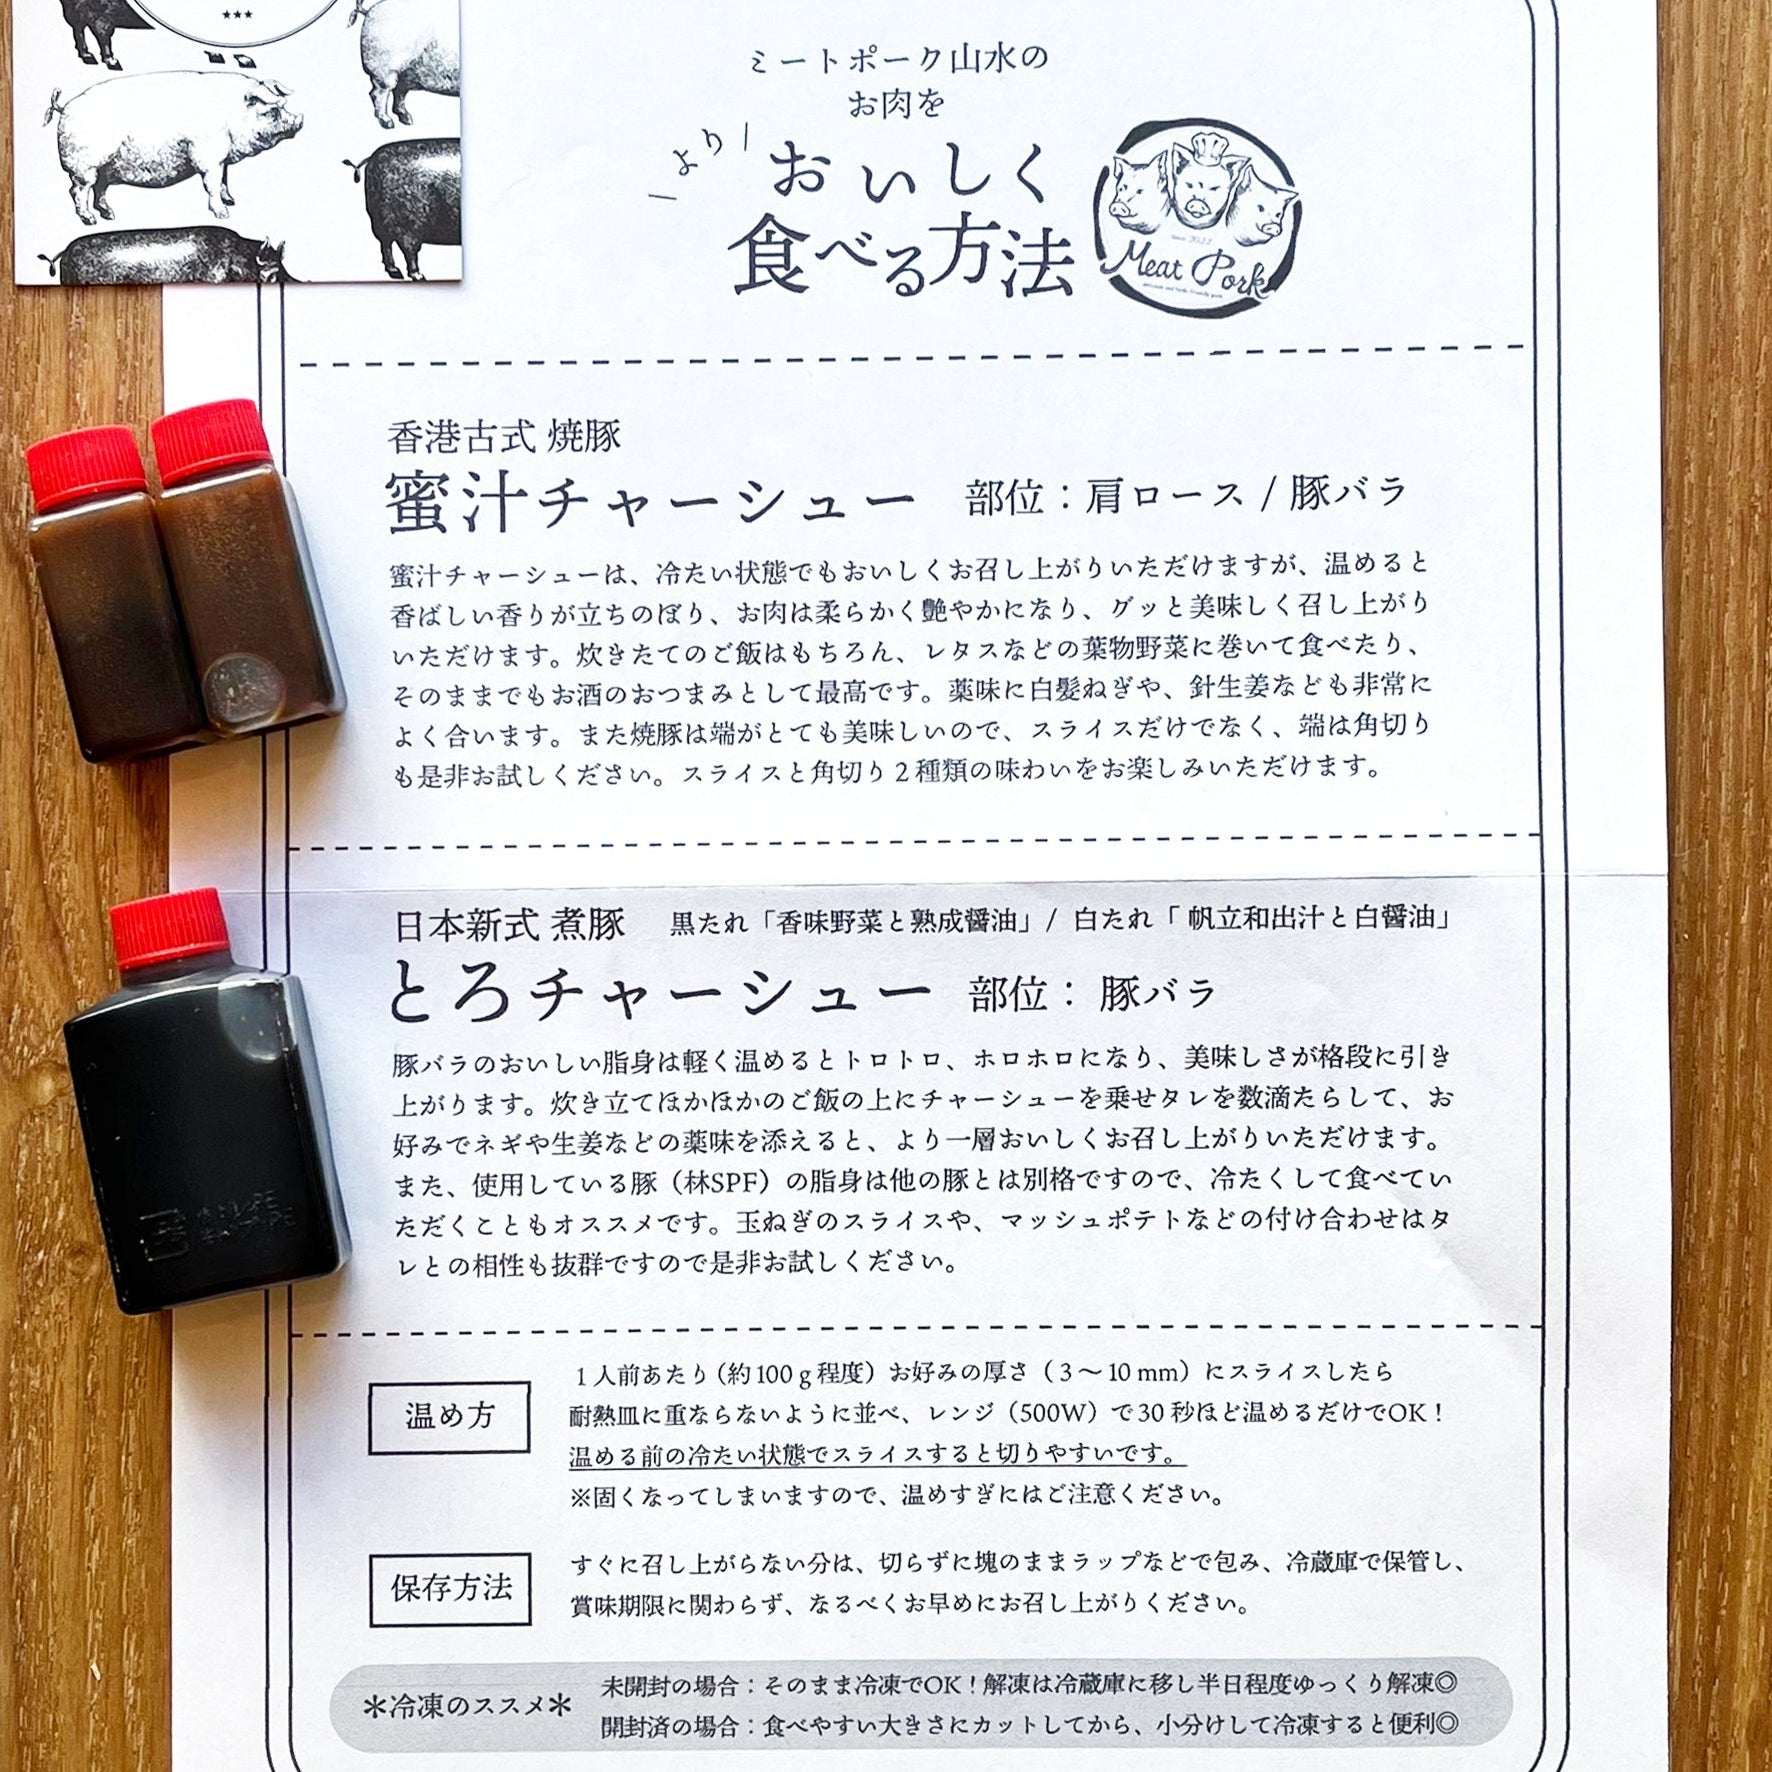 ミートポーク山水の
お肉を
より
おいしく
食べる方法
since 2022
Meat Pork
香港古式 焼豚
蜜汁チャーシュー 部位：肩ロース / 豚バラ
蜜汁チャーシューは、冷たい状態でもおいしくお召し上がりいただけますが、温めると
香ばしい香りが立ちのぼり、お肉は柔らかく艶やかになり、グッと美味しく召し上がり
いただけます。炊きたてのご飯はもちろん、レタスなどの葉物野菜に巻いて食べたり、
そのままでもお酒のおつまみとして最高です。薬味に白髪ねぎや、針生姜なども非常に
よく合います。また焼豚は端がとても美味しいので、スライスだけでなく、端は角切り
も是非お試しください。スライスと角切り２種類の味わいをお楽しみいただけます。
日本新式 煮豚 黒たれ「香味野菜と熟成醤油」/ 白たれ「 帆立和出汁と白醤油」
とろチャーシュー 部位： 豚バラ
豚バラのおいしい脂身は軽く温めるとトロトロ、ホロホロになり、美味しさが格段に引き
上がります。炊き立てほかほかのご飯の上にチャーシューを乗せタレを数滴たらして、お
好みでネギや生姜などの薬味を添えると、より一層おいしくお召し上がりいただけます。
また、使用している豚（林SPF）の脂身は他の豚とは別格ですので、冷たくして食べてい
ただくこともオススメです。玉ねぎのスライスや、マッシュポテトなどの付け合わせはタ
レとの相性も抜群ですので是非お試しください。
温め方
１人前あたり（約100ｇ程度）お好みの厚さ（３〜10 mm）にスライスしたら
耐熱皿に重ならないように並べ、レンジ（500W）で30 秒ほど温めるだけでOK！
温める前の冷たい状態でスライスすると切りやすいです。
※固くなってしまいますので、温めすぎにはご注意ください。
保存方法
すぐに召し上がらない分は、切らずに塊のままラップなどで包み、冷蔵庫で保管し、
賞味期限に関わらず、なるべくお早めにお召し上がりください。
＊冷凍のススメ＊
未開封の場合：そのまま冷凍でOK！解凍は冷蔵庫に移し半日程度ゆっくり解凍◎
開封済の場合：食べやすい大きさにカットしてから、小分けして冷凍すると便利◎